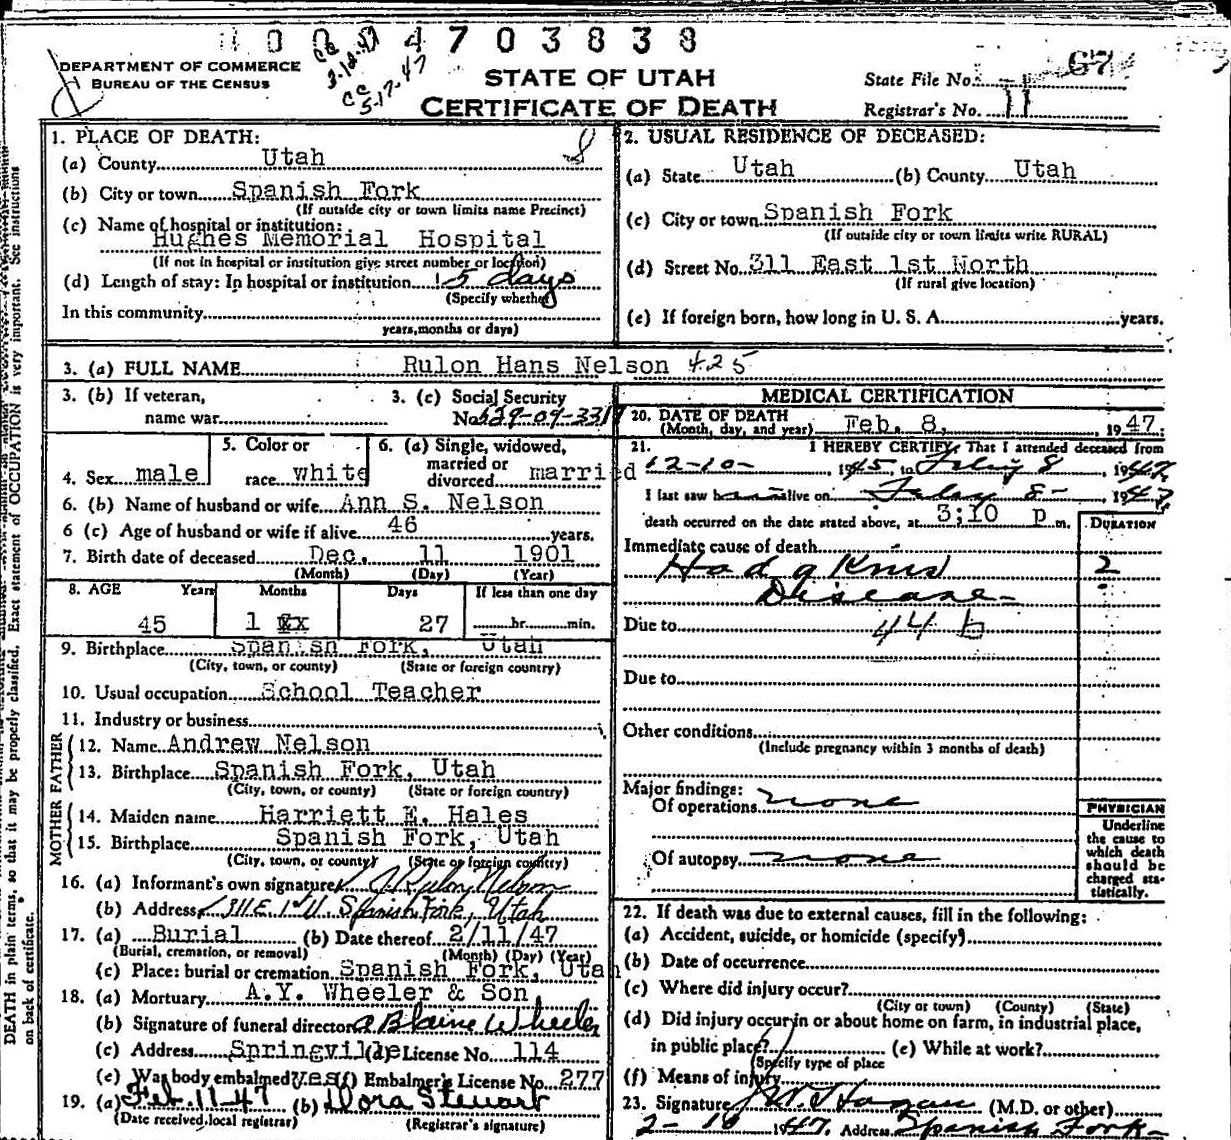 0 0 4 7 0 3 8 3 8
CC
3-12-47
CC
5-17-47
DEPARTMENT OF COMMERCE
BUREAU OF THE CENSUS
STATE OF UTAH
CERTIFICATE OF DEATH
State File No. 67
Registrar's No. 11
1. PLACE OF DEATH:
(a) County Utah
(b) City or town Spanish Fork
(If outside city or town limits name Precinct)
(c) Name of hospital or institution:
Hughes Memorial Hospital
(If not in hospital or institution give street number or location)
(d) Length of stay: In hospital or institution 5 days
(Specify whether
In this community
years, months or days)
2. USUAL RESIDENCE OF DECEASED:
(a) State Utah (b) County Utah
(c) City or town Spanish Fork
(If outside city or town limits write RURAL)
(d) Street No. 311 East 1st North
(If rural give location)
(e) If foreign born, how long in U. S. A. years.
3. (a) FULL NAME Rulon Hans Nelson 425
3. (b) If veteran,
name war
3. (c) Social Security
No. 529-09-3317
4. Sex male
5. Color or
race white
6. (a) Single, widowed,
married or
divorced married
6. (b) Name of husband or wife Ann S. Nelson
6 (c) Age of husband or wife if alive 46 years.
7. Birth date of deceased Dec. 11 1901
(Month) (Day) (Year)
8. AGE Years Months Days If less than one day
45 1 27 hr. min.
9. Birthplace Spanish Fork, Utah
(City, town, or county) (State or foreign country)
10. Usual occupation School Teacher
11. Industry or business
FATHER
12. Name Andrew Nelson
13. Birthplace Spanish Fork, Utah
(City, town, or county) (State or foreign country)
MOTHER
14. Maiden name Harriett E. Hales
15. Birthplace Spanish Fork, Utah
(City, town, or county) (State or foreign country)
16. (a) Informant's own signature J. Rulon Nelson
(b) Address 311 E. 1st N. Spanish Fork, Utah
17. (a) Burial (b) Date thereof 2/11/47
(Burial, cremation, or removal) (Month) (Day) (Year)
(c) Place: burial or cremation Spanish Fork, Utah
18. (a) Mortuary A.Y. Wheeler & Son
(b) Signature of funeral director A Blaine Wheeler
(c) Address Springville (d) License No. 114
(e) Was body embalmed? yes (f) Embalmer's License No. 277
19. (a) Feb. 11-47 (b) Dora Stewart
(Date received local registrar) (Registrar's signature)
MEDICAL CERTIFICATION
20. DATE OF DEATH
(Month, day, and year) Feb. 8, 1947
21. I HEREBY CERTIFY, That I attended deceased from
12-10- 1945, to Feby 8 1947
I last saw alive on Feby 8- 1947
death occurred on the date stated above, at 3:10 p m.
DURATION
Immediate cause of death
Hodgkins 2
Disease
Due to 44 b
Due to
Other conditions
(Include pregnancy within 3 months of death)
Major findings:
Of operations none
Of autopsy none
PHYSICIAN
Underline
the cause to
which death
should be
charged sta-
tistically.
22. If death was due to external causes, fill in the following:
(a) Accident, suicide, or homicide (specify)
(b) Date of occurrence
(c) Where did injury occur?
(City or town) (County) (State)
(d) Did injury occur in or about home on farm, in industrial place,
in public place? (e) While at work?
(Specify type of place
(f) Means of injury
23. Signature Hagan (M.D. or other)
2-10 1947. Address Spanish Fork
DEATH in plain terms, so that it may be properly classified. Exact statement of OCCUPATION is very important. See instructions
on back of certificate.